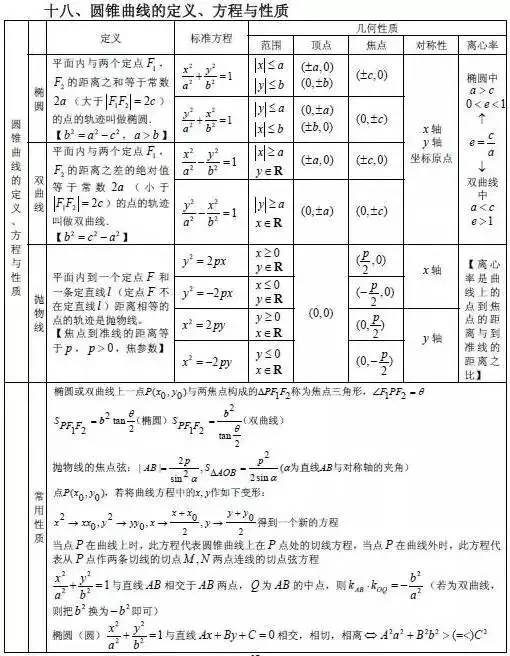 十八、圆锥曲线的定义、方程与性质
定义 标准方程 几何性质
范围 顶点 焦点 对称性 离心率
圆锥曲线的定义、方程与性质
椭圆
平面内与两个定点 F₁,
F₂ 的距离之和等于常数
2a（大于|F₁F₂|=2c）
的点的轨迹叫做椭圆.
【b²=a²-c², a>b】
x²/a²+y²/b²=1
|x|≤a
|y|≤b
(±a,0)
(0,±b)
(±c,0)
y²/a²+x²/b²=1
|y|≤a
|x|≤b
(0,±a)
(±b,0)
(0,±c)
双曲线
平面内与两个定点 F₁,
F₂ 的距离之差的绝对值
等于常数 2a（小于
|F₁F₂|=2c）的点的轨迹
叫做双曲线.
【b²=c²-a²】
x²/a²-y²/b²=1
|x|≥a
y∈R
(±a,0)
(±c,0)
y²/a²-x²/b²=1
|y|≥a
x∈R
(0,±a)
(0,±c)
x轴
y轴
坐标原点
椭圆中
a>c
0<e<1
↑
e=c/a
↓
双曲线
中
a<c
e>1
抛物线
平面内到一个定点 F 和
一条定直线 l（定点 F 不
在定直线 l）距离相等的
点的轨迹是抛物线。
【焦点到准线的距离等
于 p, p>0, 焦参数】
y²=2px
x≥0
y∈R
(p/2,0)
y²=-2px
x≤0
y∈R
(-p/2,0)
x轴
x²=2py
y≥0
x∈R
(0,p/2)
x²=-2py
y≤0
x∈R
(0,-p/2)
y轴
(0,0)
【离心
率是曲
线上的
点到焦
点的距
离与到
准线的
距离之
比】
常用性质
椭圆或双曲线上一点P(x₀,y₀)与两焦点构成的ΔPF₁F₂称为焦点三角形, ∠F₁PF₂=θ
S_PF₁F₂=b² tan θ/2(椭圆) S_PF₁F₂=b²/tan θ/2(双曲线)
抛物线的焦点弦: |AB|=2p/sin²α, S_ΔAOB=p²/2sinα(α为直线AB与对称轴的夹角)
点P(x₀,y₀), 若将曲线方程中的x, y作如下变形:
x²→xx₀, y²→yy₀, x→(x+x₀)/2, y→(y+y₀)/2得到一个新的方程
当点 P 在曲线上时, 此方程代表圆锥曲线上在 P 点处的切线方程, 当点 P 在曲线外时, 此方程代
表从 P 点作两条切线的切点 M, N 两点连线的切点弦方程
x²/a²+y²/b²=1与直线 AB 相交于 AB 两点, Q 为 AB 的中点, 则 k_AB·k_OQ=-b²/a²（若为双曲线,
则把 b² 换为 -b² 即可）
椭圆（圆）x²/a²+y²/b²=1与直线 Ax+By+C=0 相交, 相切, 相离⇔A²a²+B²b²>(=<)C²